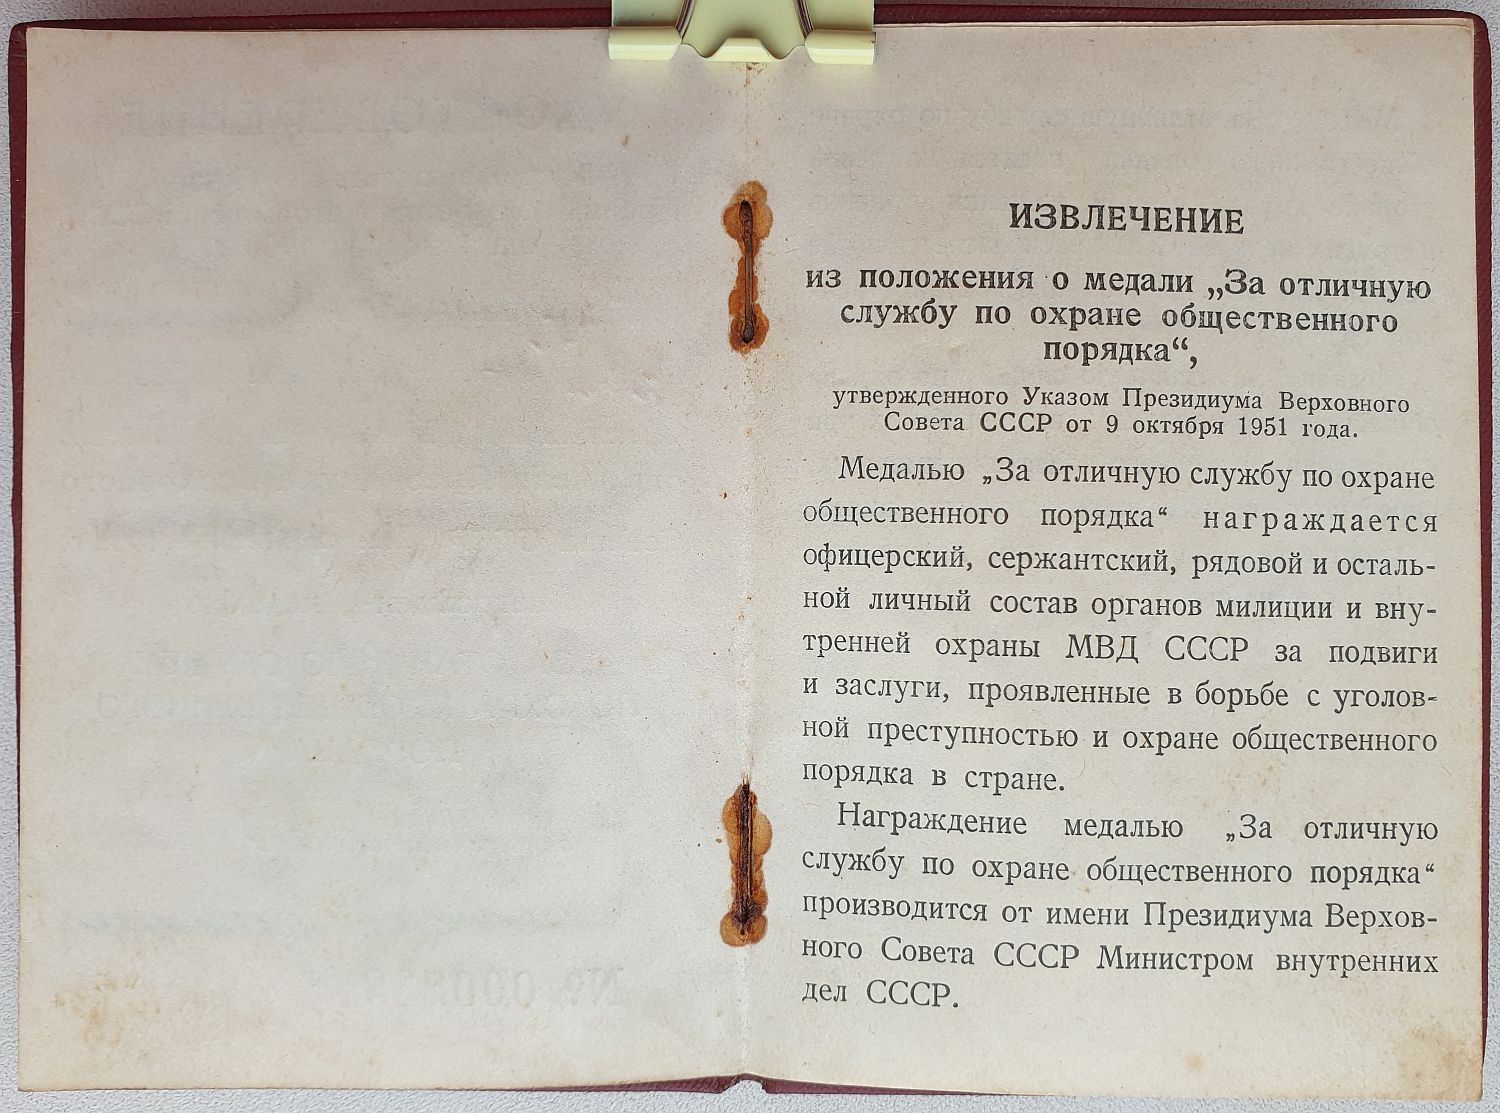 ИЗВЛЕЧЕНИЕ
из положения о медали „За отличную
службу по охране общественного
порядка“,
утвержденного Указом Президиума Верховного
Совета СССР от 9 октября 1951 года.
Медалью „За отличную службу по охране
общественного порядка“ награждается
офицерский, сержантский, рядовой и осталь-
ной личный состав органов милиции и вну-
тренней охраны МВД СССР за подвиги
и заслуги, проявленные в борьбе с уголов-
ной преступностью и охране общественного
порядка в стране.
Награждение медалью „За отличную
службу по охране общественного порядка“
производится от имени Президиума Верхов-
ного Совета СССР Министром внутренних
дел СССР.